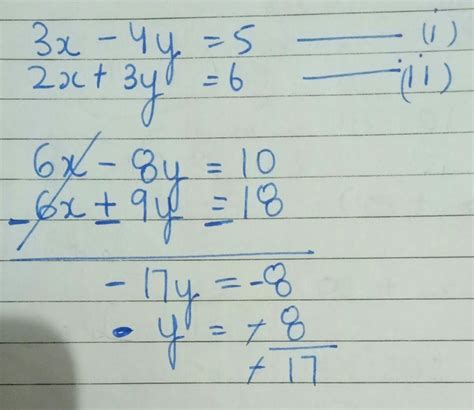 3x - 4y = 5 —— (i)
2x + 3y = 6 —— (ii)
6x - 8y = 10
- 6x ± 9y = - 18
- 17y = -8
- y = - 8
- 17